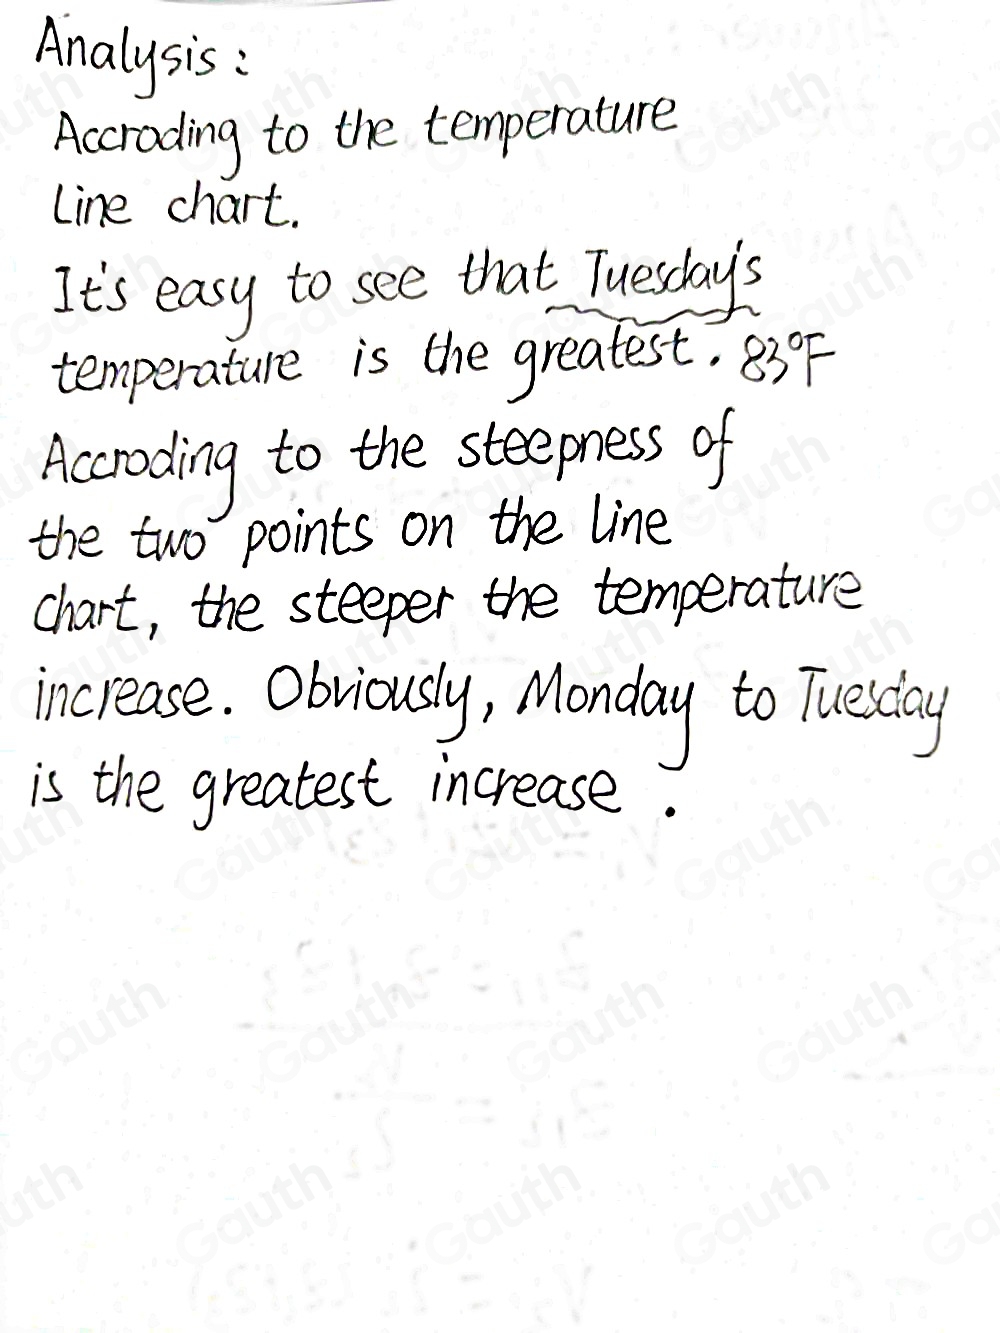 Analysis:
Accroding to the temperature
Line chart.
It's easy to see that Tuesday's
temperature is the greatest. 83°F
Accroding to the steepness of
the two points on the line
chart, the steeper the temperature
increase. Obviously, Monday to Tuesday
is the greatest increase.